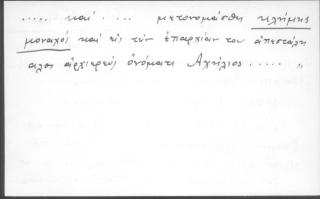 ..... καὶ .... μετονομάσθη κλήμης
μοναχός καὶ εἰς τὴν ἐπαρχίαν του ἀπεστάλη
ἄλλος ἀρχιερεύς ὀνόματι Ἀχίλιος ..... "